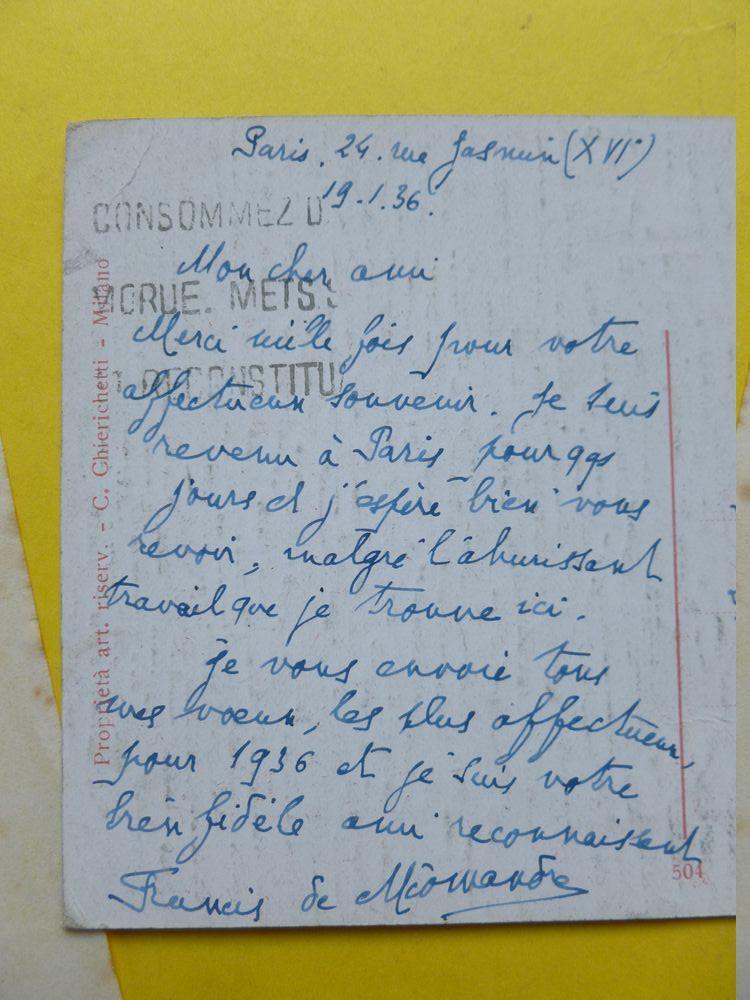 Paris. 24. rue Jasmin (XVIe)
19.1.36.
CONSOMMEZ D
Mon cher ami
MORUE. METS S
Merci mille fois pour votre
RECONSTITU
affectueux souvenir. Je suis
revenu à Paris pour qqs
jours et j'espère bien vous
revoir, malgré l'ahurissant
travail que je trouve ici.
Je vous envoie tous
mes vœux, les plus affectueux,
pour 1936 et je suis votre
bien fidèle ami reconnaissant
Francis de Miomandre
Proprietà art. riserv. - C. Chierichetti - Milano
504